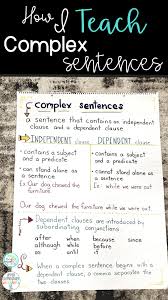 How I Teach
Complex
sentences
Complex sentences
a sentence that contains an independent
clause and a dependent clause.
INDEPENDENT CLAUSE
DEPENDENT CLAUSE
• contains a subject
and a predicate
• can stand alone as
a sentence
Ex: Our dog chewed the
furniture.
• contains a subject
and a predicate
• cannot stand alone
as a sentence
Ex: while we were out
Our dog chewed the furniture while we were out.
Dependent clauses are introduced by
subordinating conjunctions.
after although because before
when while since
if until
When a complex sentence begins with a
dependent clause, a comma separates the two
clauses.